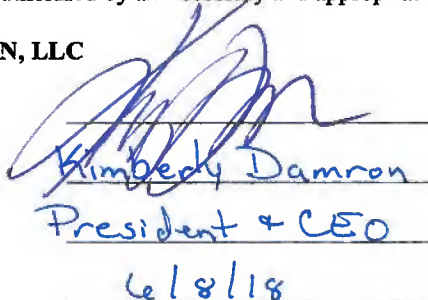 N, LLC
Kimberly Damron
President + CEO
6/8/18